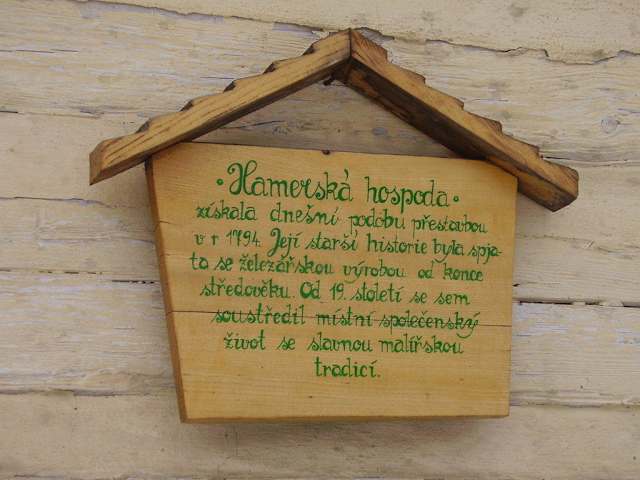 • Hamerská hospoda •
získala dnešní podobu přestavbou
v r 1794. Její starší historie byla spja-
ta se železářskou výrobou od konce
středověku. Od 19. století se sem
soustředil místní společenský
život se slavnou malířskou
tradicí.